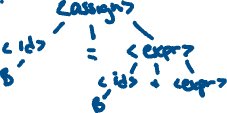 <assign>
<id> = <expr>
B <id> + <expr>
B